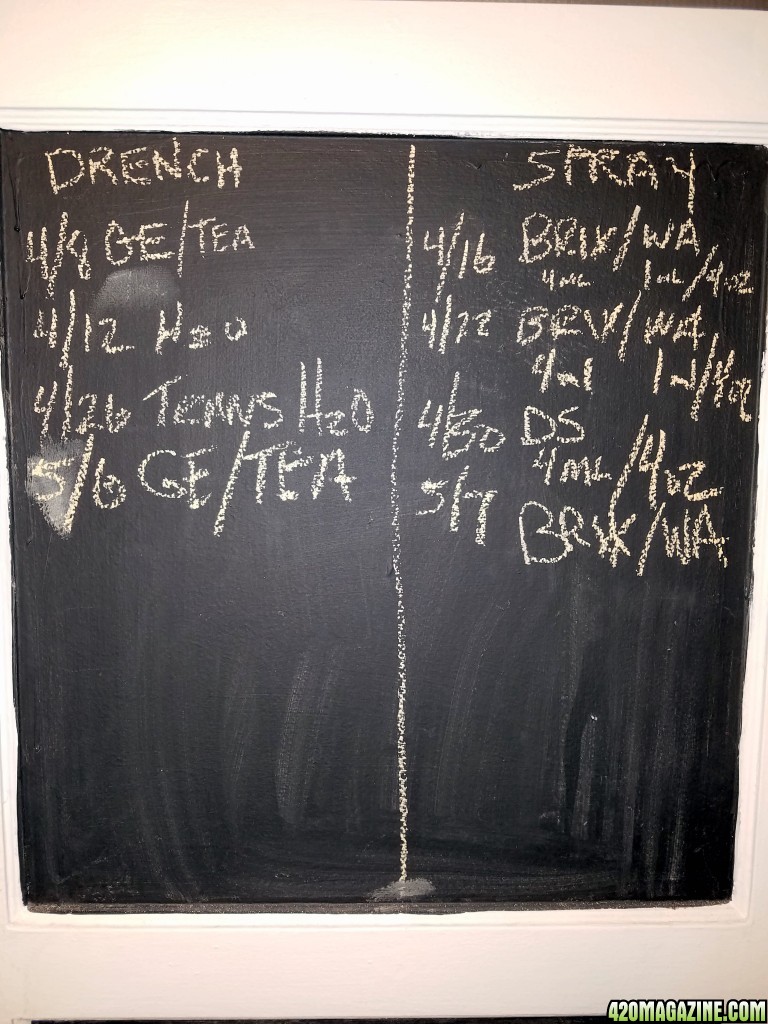 DRENCH
4/8 GE/TEA
4/12 H2O
4/26 H2O
5/6 GE/TEA
SPRAY
4/16 BRIX/WA
4ML 1ML/4OZ
4/22 BRIX/WA
4ml 1ml/4oz
4/30 DS
4ML/4OZ
5/7
BRIX/WA
420MAGAZINE.COM